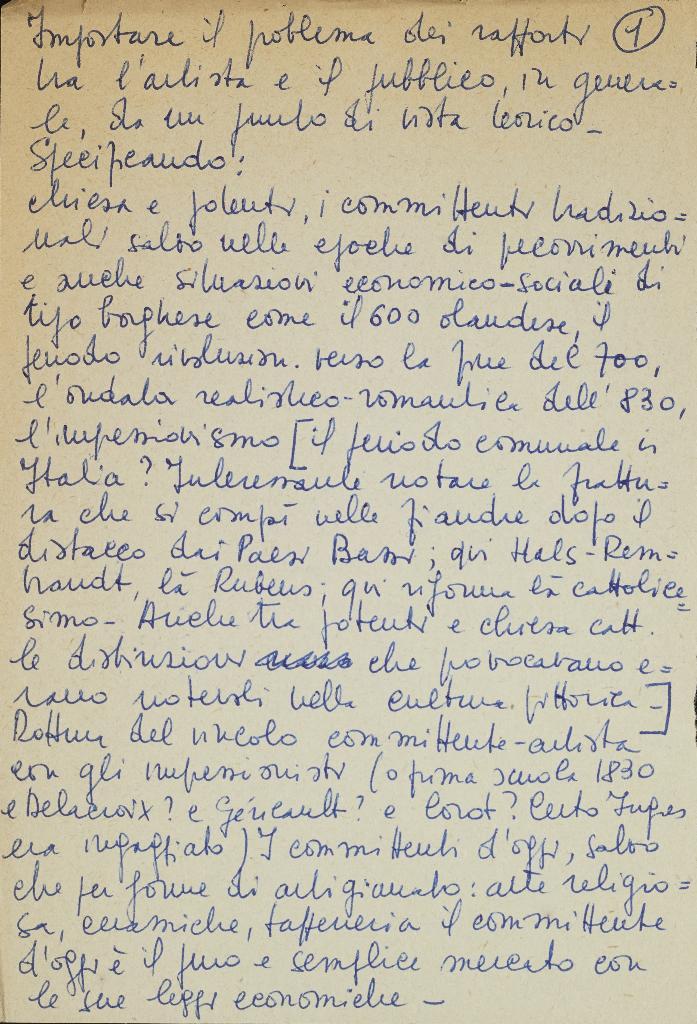 Impostare il problema dei rapporti 1
tra l'artista e il pubblico, in genera=
le, da un punto di vista teorico -
Specificando:
chiesa e potenti, i committenti tradizio=
nali salvo nelle epoche di precorrimenti
e anche situazioni economico-sociali di
tipo borghese come il 600 olandese, il
periodo rivoluzion. verso la fine del 700,
l'ondata realistico-romantica dell' 830,
l'impressionismo [il periodo comunale in
Italia? Interessante notare la frattu=
ra che si compì nelle fiandre dopo il
distacco dai Paesi Bassi; qui Hals-Rem=
brandt, là Rubens; qui riforma là cattolice=
simo - Anche tra potenti e chiesa catt.
le distinzioni che provocavano e=
rano notevoli nella cultura pittorica -]
Rottura del vincolo committente-artista
con gli impressionisti (o prima scuola 1830
e Delacroix? e Géricault? e Corot? Certo Ingres
era ingaggiato) I committenti d'oggi, salvo
che per forme di artigianato: arte religio=
sa, ceramiche, tappezzeria il committente
d'oggi è il puro e semplice mercato con
le sue leggi economiche -